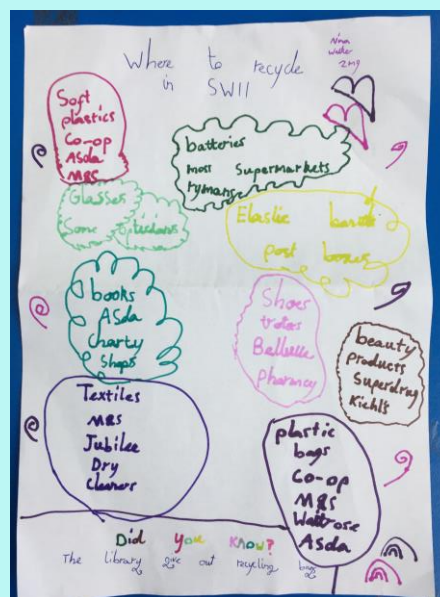 Where to recycle
in SW11
Nina
2m9
Soft
plastics
Co-op
Asda
M&S
batteries
most Supermarkets
rymans
Glasses
Some opticians
Elastic bands
post boxes
books
ASda
Charty
Shops
Shoes
trotters
Bellville
pharmacy
beauty
products
Superdrug
Kiehl's
Textiles
M&S
Jubilee
Dry
Cleaners
plastic
bags
Co-op
M&S
Waitrose
ASda
Did You know?
The library give out recycling bags